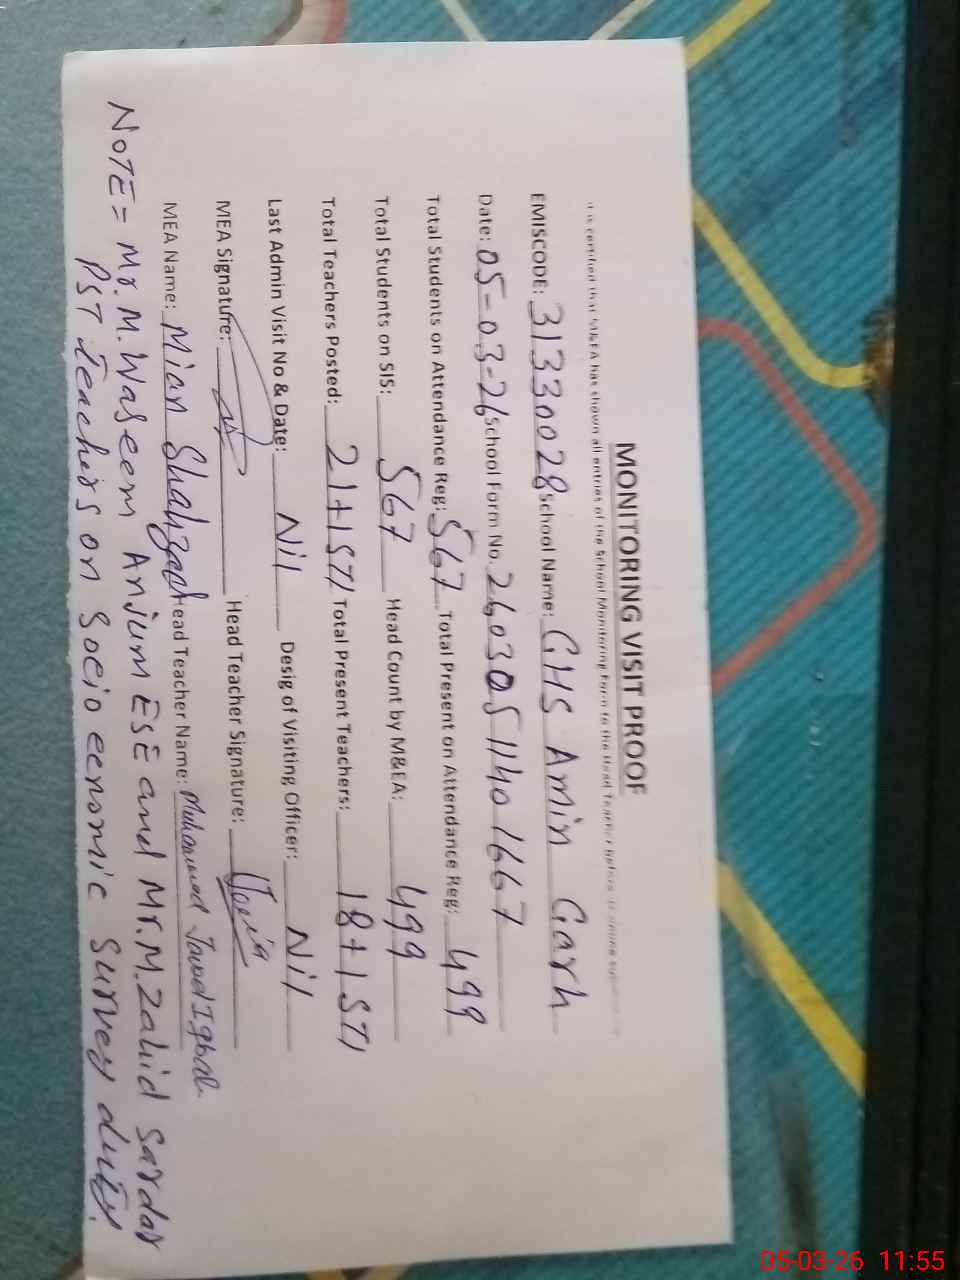 MONITORING VISIT PROOF
It is certified that M&EA has shown all entries of the School Monitoring Form to the Head Teacher before
EMISCODE: 31330028 School Name: GHS Amin Garh
Date: 05-03-26 School Form No. 260305 1140 1667
Total Students on Attendance Reg: 567 Total Present on Attendance Reg: 499
Total Students on SIS: 567 Head Count by M&EA: 499
Total Teachers Posted: 21+1STI Total Present Teachers: 18+1STI
Last Admin Visit No & Date: Nil Desig of Visiting Officer: Nil
MEA Signature: Head Teacher Signature:
MEA Name: Mian Shahzad Head Teacher Name: Muhammad Javed Iqbal
NOTE= Mr. M. Waseem Anjum ESE and Mr. M. Zahid Sardar
PST Teachers on Socio economic Survey duty.
05-03-26 11:55